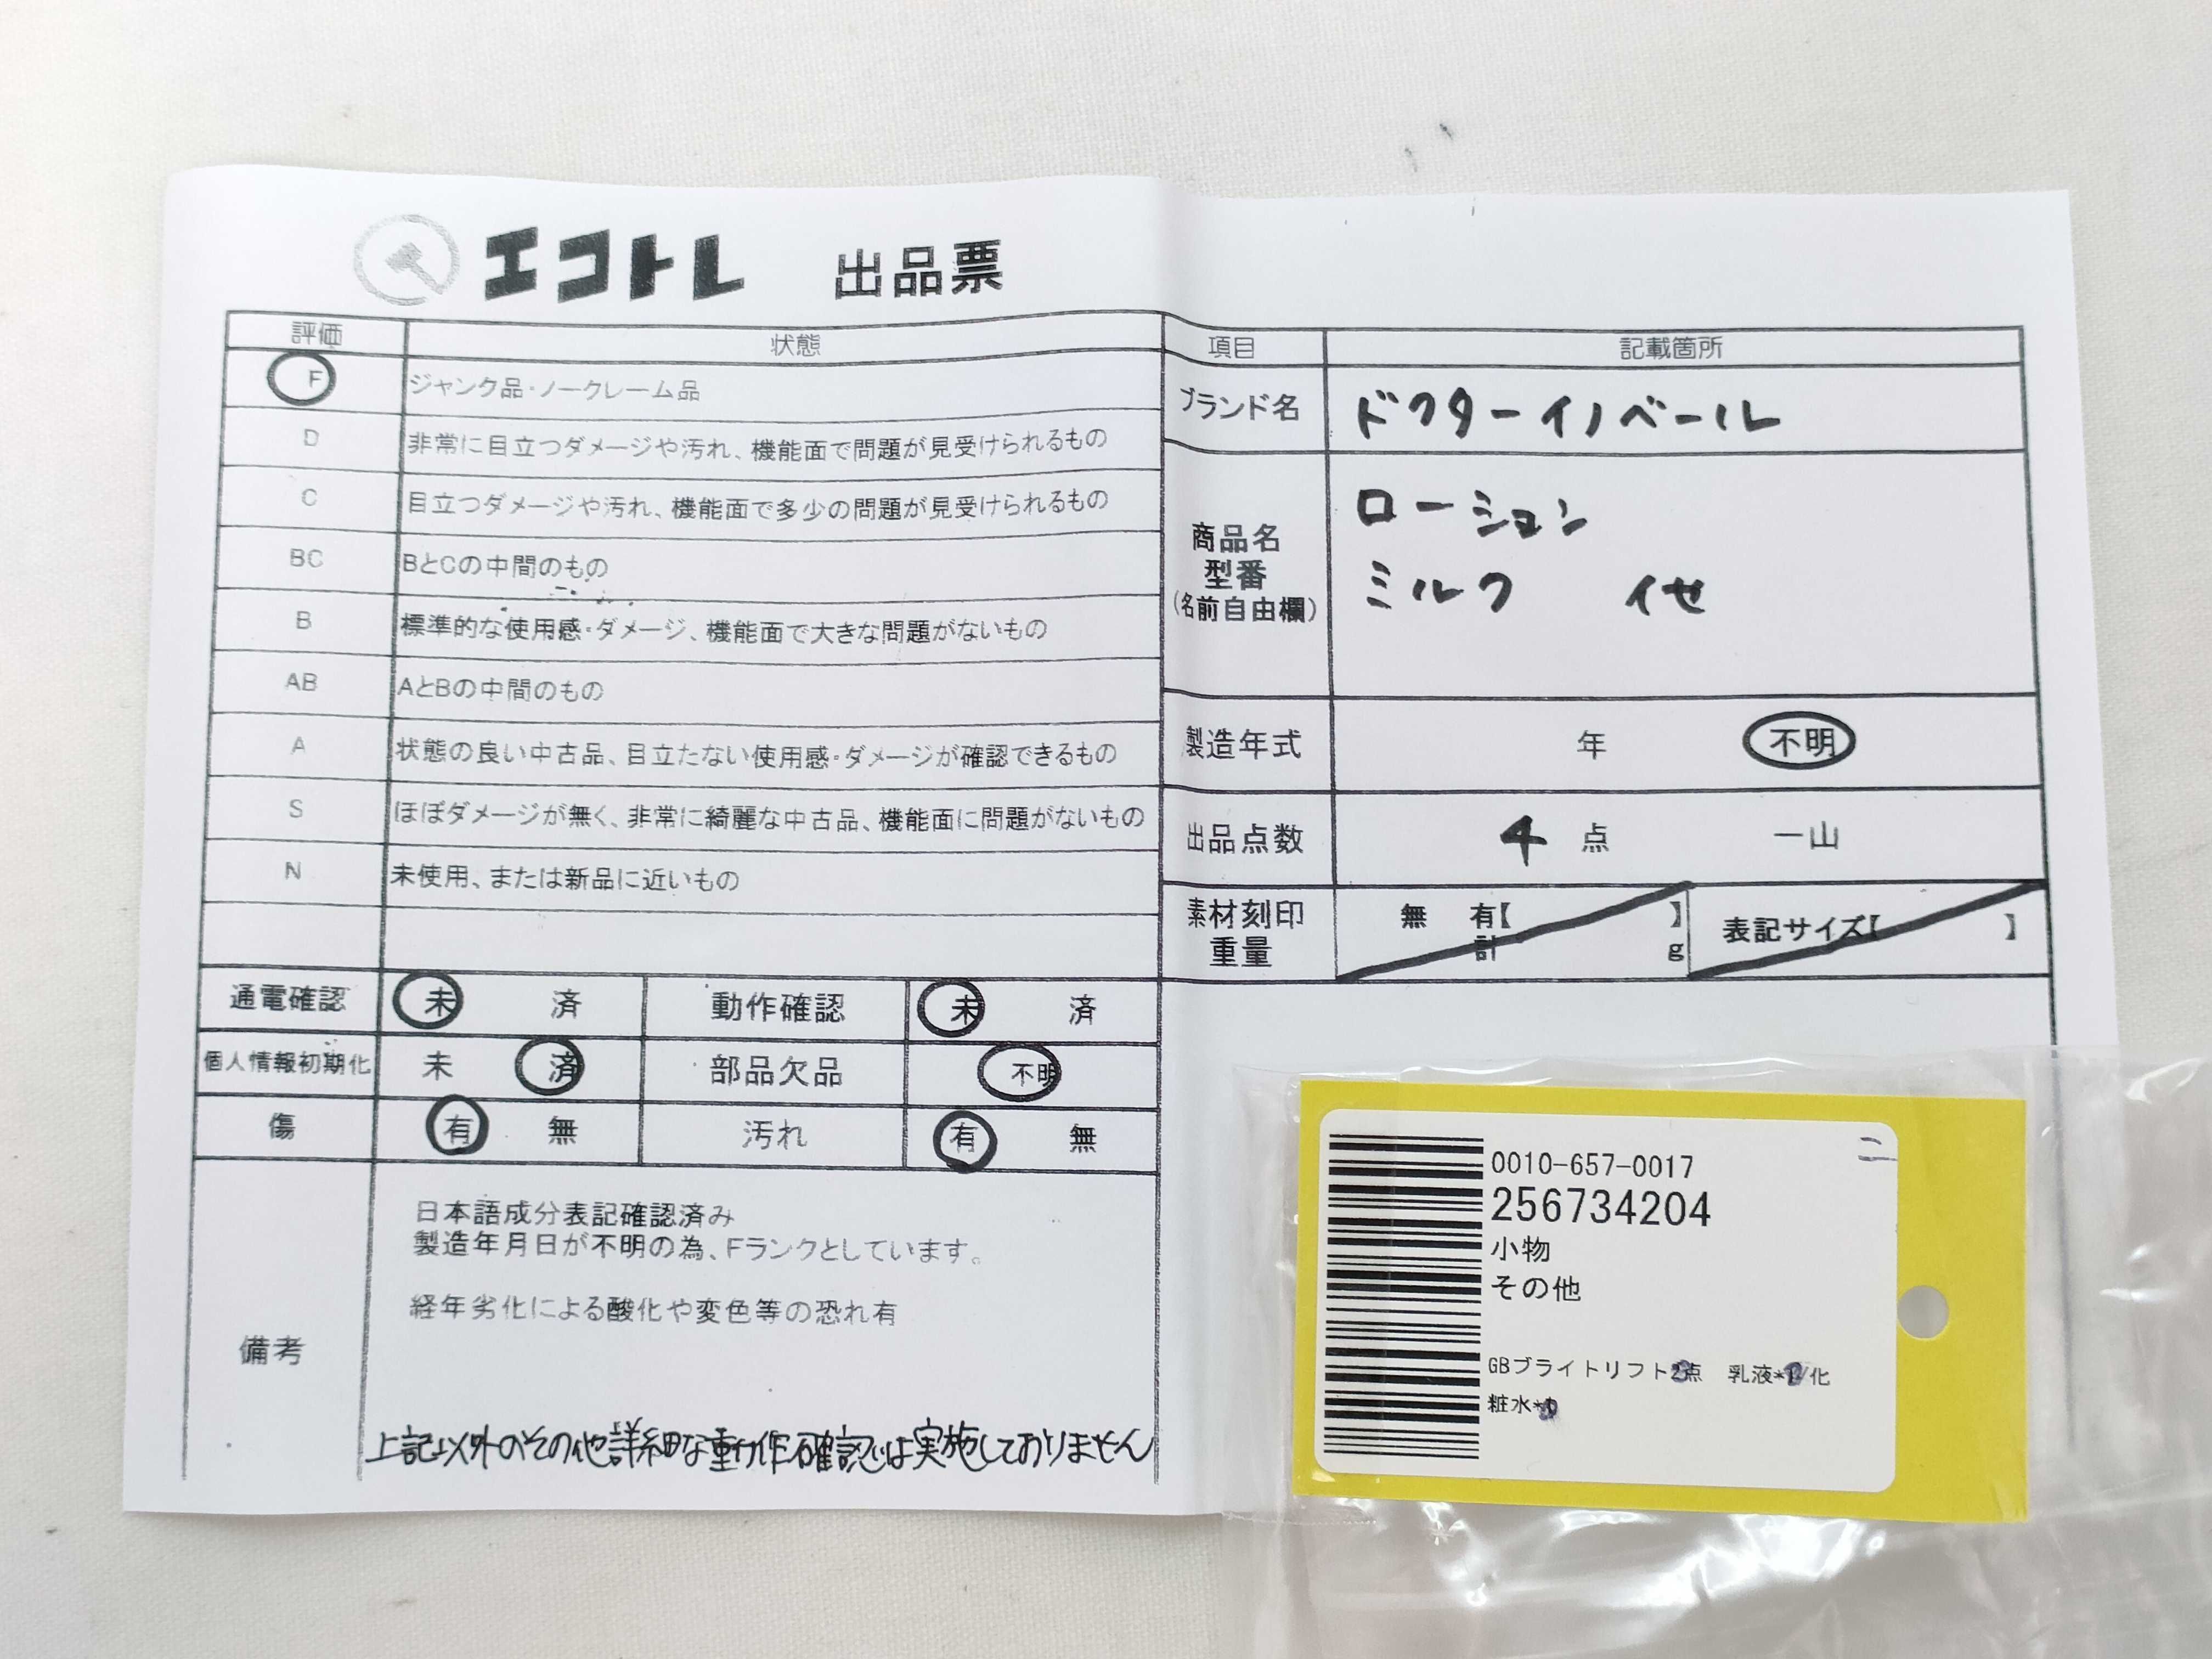 エコトレ 出品票
評価 状態
F ジャンク品・ノークレーム品
D 非常に目立つダメージや汚れ、機能面で問題が見受けられるもの
C 目立つダメージや汚れ、機能面で多少の問題が見受けられるもの
BC BとCの中間のもの
B 標準的な使用感・ダメージ、機能面で大きな問題がないもの
AB AとBの中間のもの
A 状態の良い中古品、目立たない使用感・ダメージが確認できるもの
S ほぼダメージが無く、非常に綺麗な中古品、機能面に問題がないもの
N 未使用、または新品に近いもの
通電確認 未 済 動作確認 未 済
個人情報初期化 未 済 部品欠品 不明
傷 有 無 汚れ 有 無
備考
日本語成分表記確認済み
製造年月日が不明の為、Fランクとしています。
経年劣化による酸化や変色等の恐れ有
上記以外のその他詳細な動作確認は実施しておりません
項目 記載箇所
ブランド名 ドクターイノベール
商品名
型番
(名前自由欄)
ローション
ミルク 他
製造年式 年 不明
出品点数 4 点 一山
素材刻印 無 有【 】 表記サイズ【 】
重量 計 g
0010-657-0017
256734204
小物
その他
GBブライトリフト 点 乳液* /化
粧水*